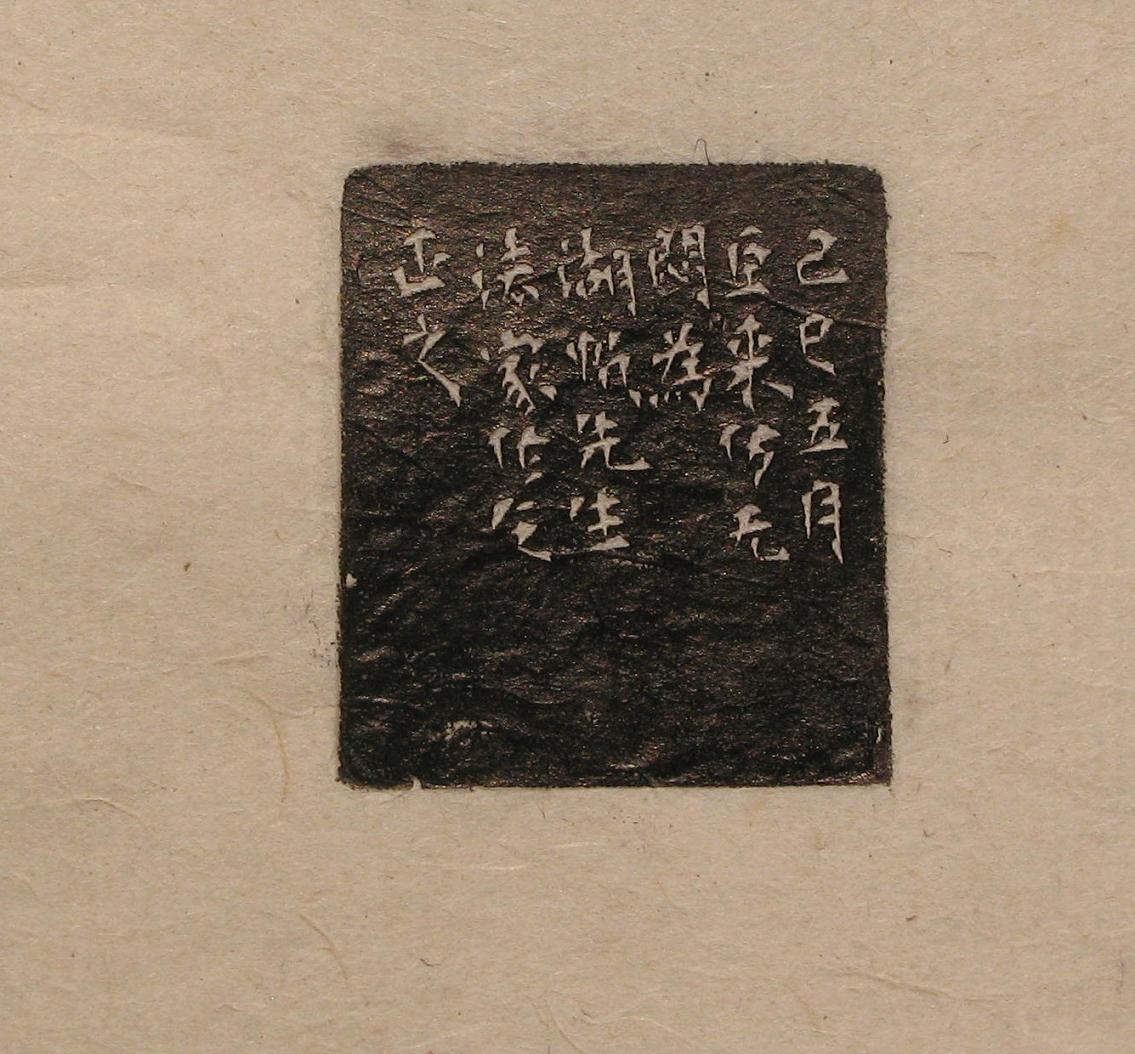 己巳五月
巨来仿元
為
湖帆先生
法家作乞
正之